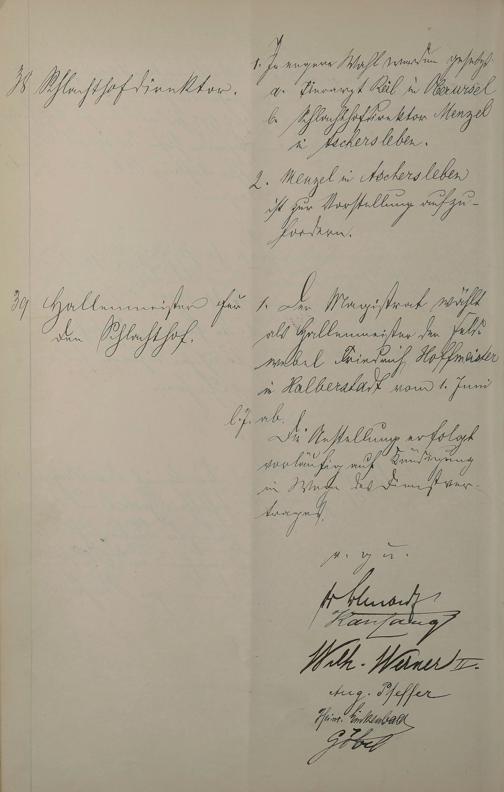 38 Schlachthofdirektor.
1. In engere Wahl werden gesetzt
a. Tierarzt Keil in Oberursel
b. Schlachthofdirektor Menzel
in Aschersleben.
2. Menzel in Aschersleben
ist zur Vorstellung aufzu-
fordern.
39 Hallenmeister für
den Schlachthof.
1. Der Magistrat wählt
als Hallenmeister den Feld-
webel Friedrich Hoffmeister
in Halberstadt vom 1. Juni
l. J. ab.
Die Anstellung erfolgt
vorläufig auf Kündigung
in Wege des Dienstver-
trages.
v. g. u.
Wilh. Werner II.
Aug. Pfeffer
Göbel